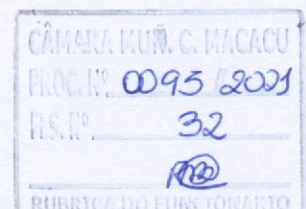 CÂMARA MUN. C. MACACU
PROC. Nº 0095 / 2001
FLS. Nº 32
RUBRICA DO FUNCIONÁRIO